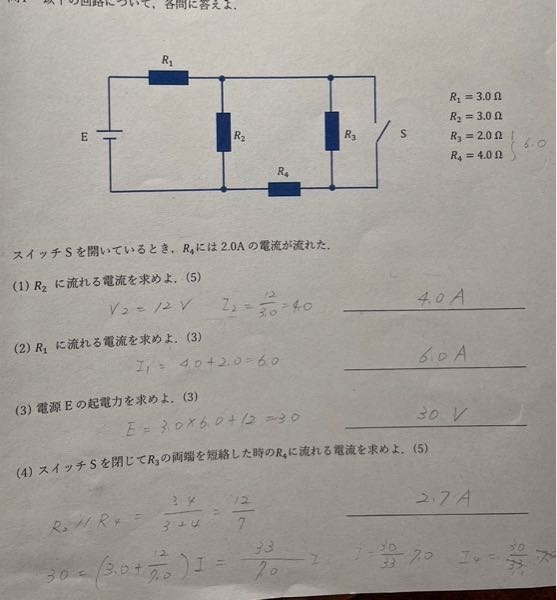 以下の回路について，各問に答えよ．
R₁
R₁ = 3.0 Ω
R₂ = 3.0 Ω
E
R₂
R₃
S
R₃ = 2.0 Ω
R₄ = 4.0 Ω
6.0
R₄
スイッチ S を開いているとき，R₄には 2.0A の電流が流れた．
(1) R₂ に流れる電流を求めよ．(5)
V₂ = 12 V I₂ = 12/3.0 = 4.0
4.0 A
(2) R₁ に流れる電流を求めよ．(3)
I₁ = 4.0 + 2.0 = 6.0
6.0 A
(3) 電源 E の起電力を求めよ．(3)
E = 3.0 × 6.0 + 12 = 30
30 V
(4) スイッチ S を閉じてR₃の両端を短絡した時のR₄に流れる電流を求めよ．(5)
2.7 A
R₂ // R₄ = 3·4/3+4 = 12/7
30 = (3.0 + 12/7.0) I = 33/7.0 I I = 30/33 7.0 I₄ = 30/33